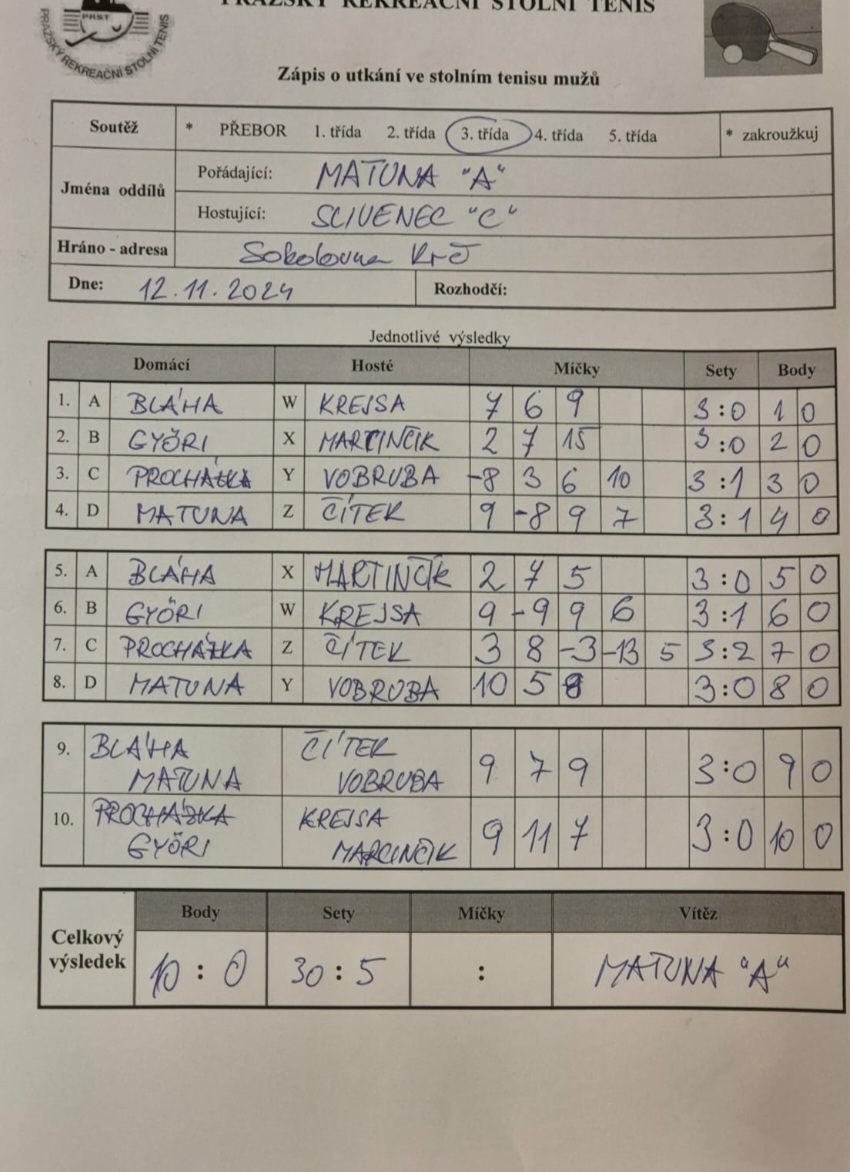 PRAŽSKÝ REKREAČNÍ STOLNÍ TENIS
PRST
PRAŽSKÝ REKREAČNÍ STOLNÍ TENIS
Zápis o utkání ve stolním tenisu mužů
Soutěž * PŘEBOR 1. třída 2. třída 3. třída 4. třída 5. třída * zakroužkuj
Jména oddílů
Pořádající: MATUNA "A"
Hostující: SLIVENEC "C"
Hráno - adresa Sokolovna Krč
Dne: 12.11.2024 Rozhodčí:
Jednotlivé výsledky
Domácí Hosté Míčky Sety Body
1. A BLÁHA W KREJSA 7 6 9 3:0 1 0
2. B GYŐRI X MARTINČÍK 2 7 15 3:0 2 0
3. C PROCHÁZKA Y VOBRUBA -8 3 6 10 3:1 3 0
4. D MATUNA Z ČÍTEK 9 -8 9 7 3:1 4 0
5. A BLÁHA X MARTINČÍK 2 7 5 3:0 5 0
6. B GYŐRI W KREJSA 9 -9 9 6 3:1 6 0
7. C PROCHÁZKA Z ČÍTEK 3 8 -3 -13 5 3:2 7 0
8. D MATUNA Y VOBRUBA 10 5 8 3:0 8 0
9. BLÁHA ČÍTEK
MATUNA VOBRUBA 9 7 9 3:0 9 0
10. PROCHÁZKA KREJSA
GYŐRI MARCINČÍK 9 11 7 3:0 10 0
Body Sety Míčky Vítěz
Celkový výsledek 10:0 30:5 : MATUNA "A"